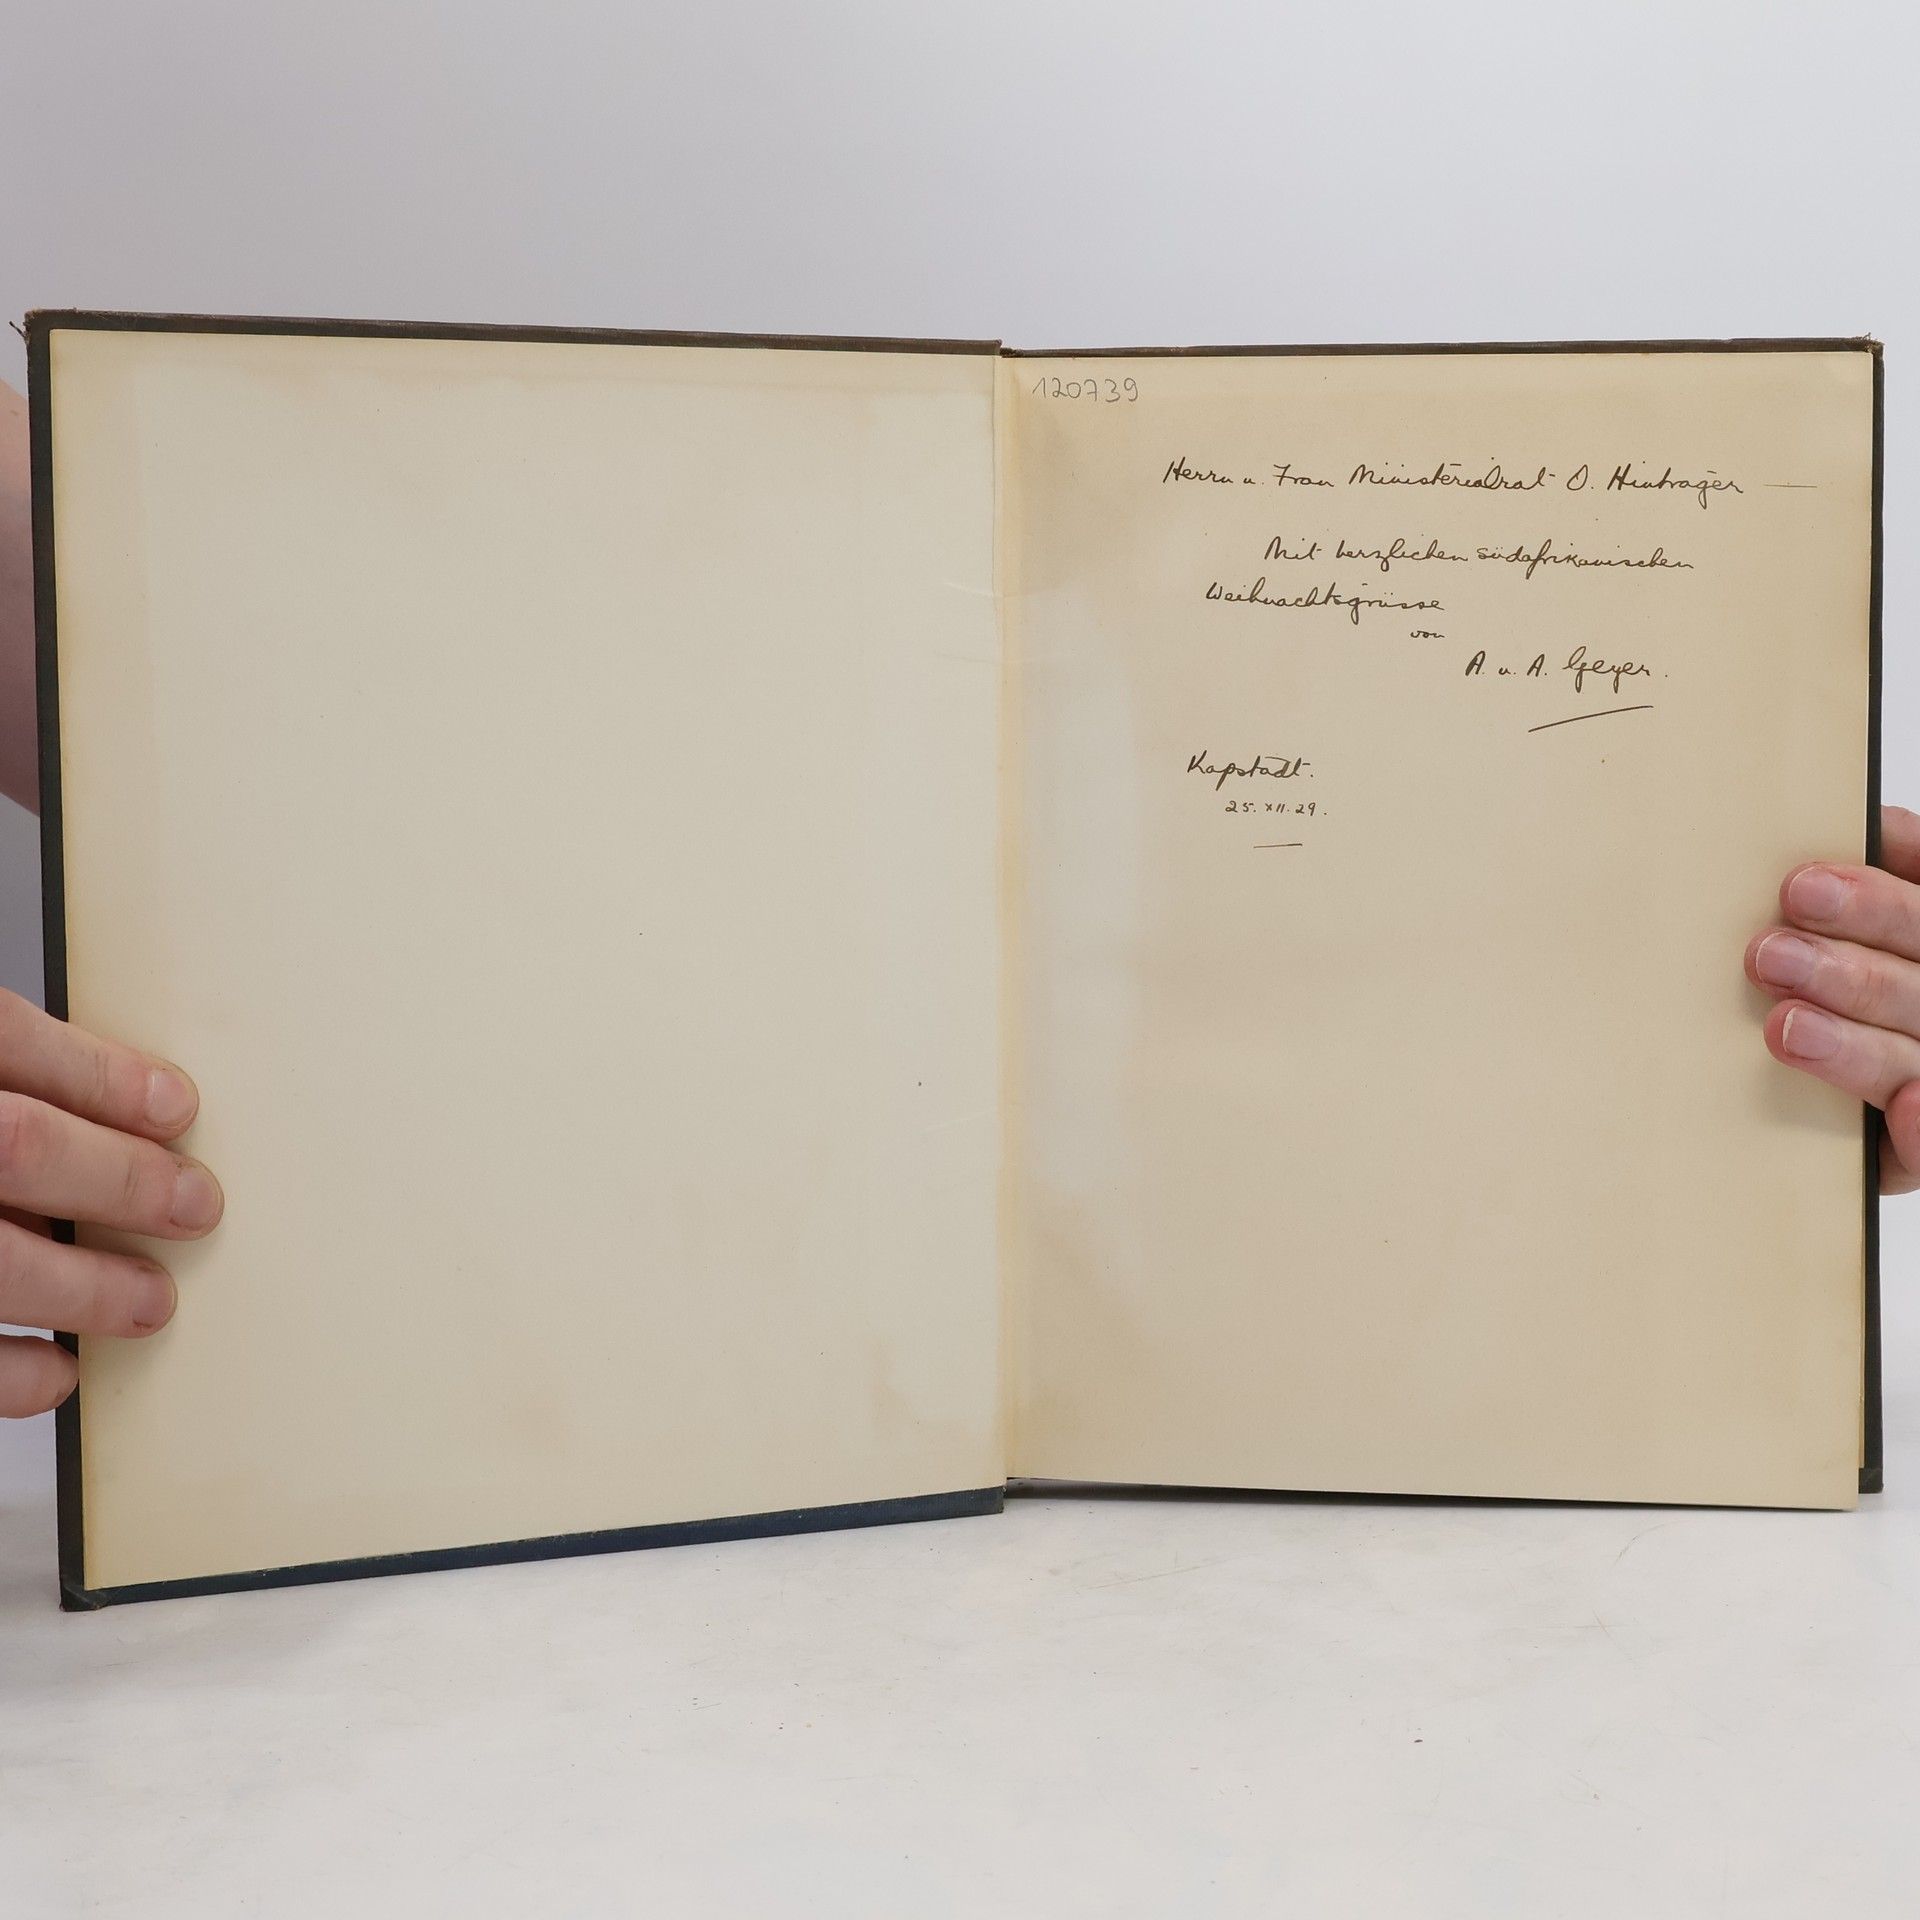 120739
Herrn u. Frau Ministerialrat O. Hintrager —
Mit herzlichen südafrikanischen
Weihnachtsgrüsse
von
A. u. A. Geyer.
Kapstadt.
25. XII. 29.